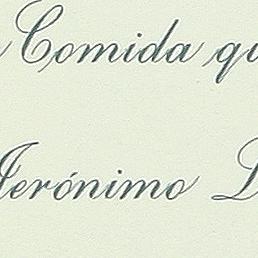 Comida qu
Jerónimo